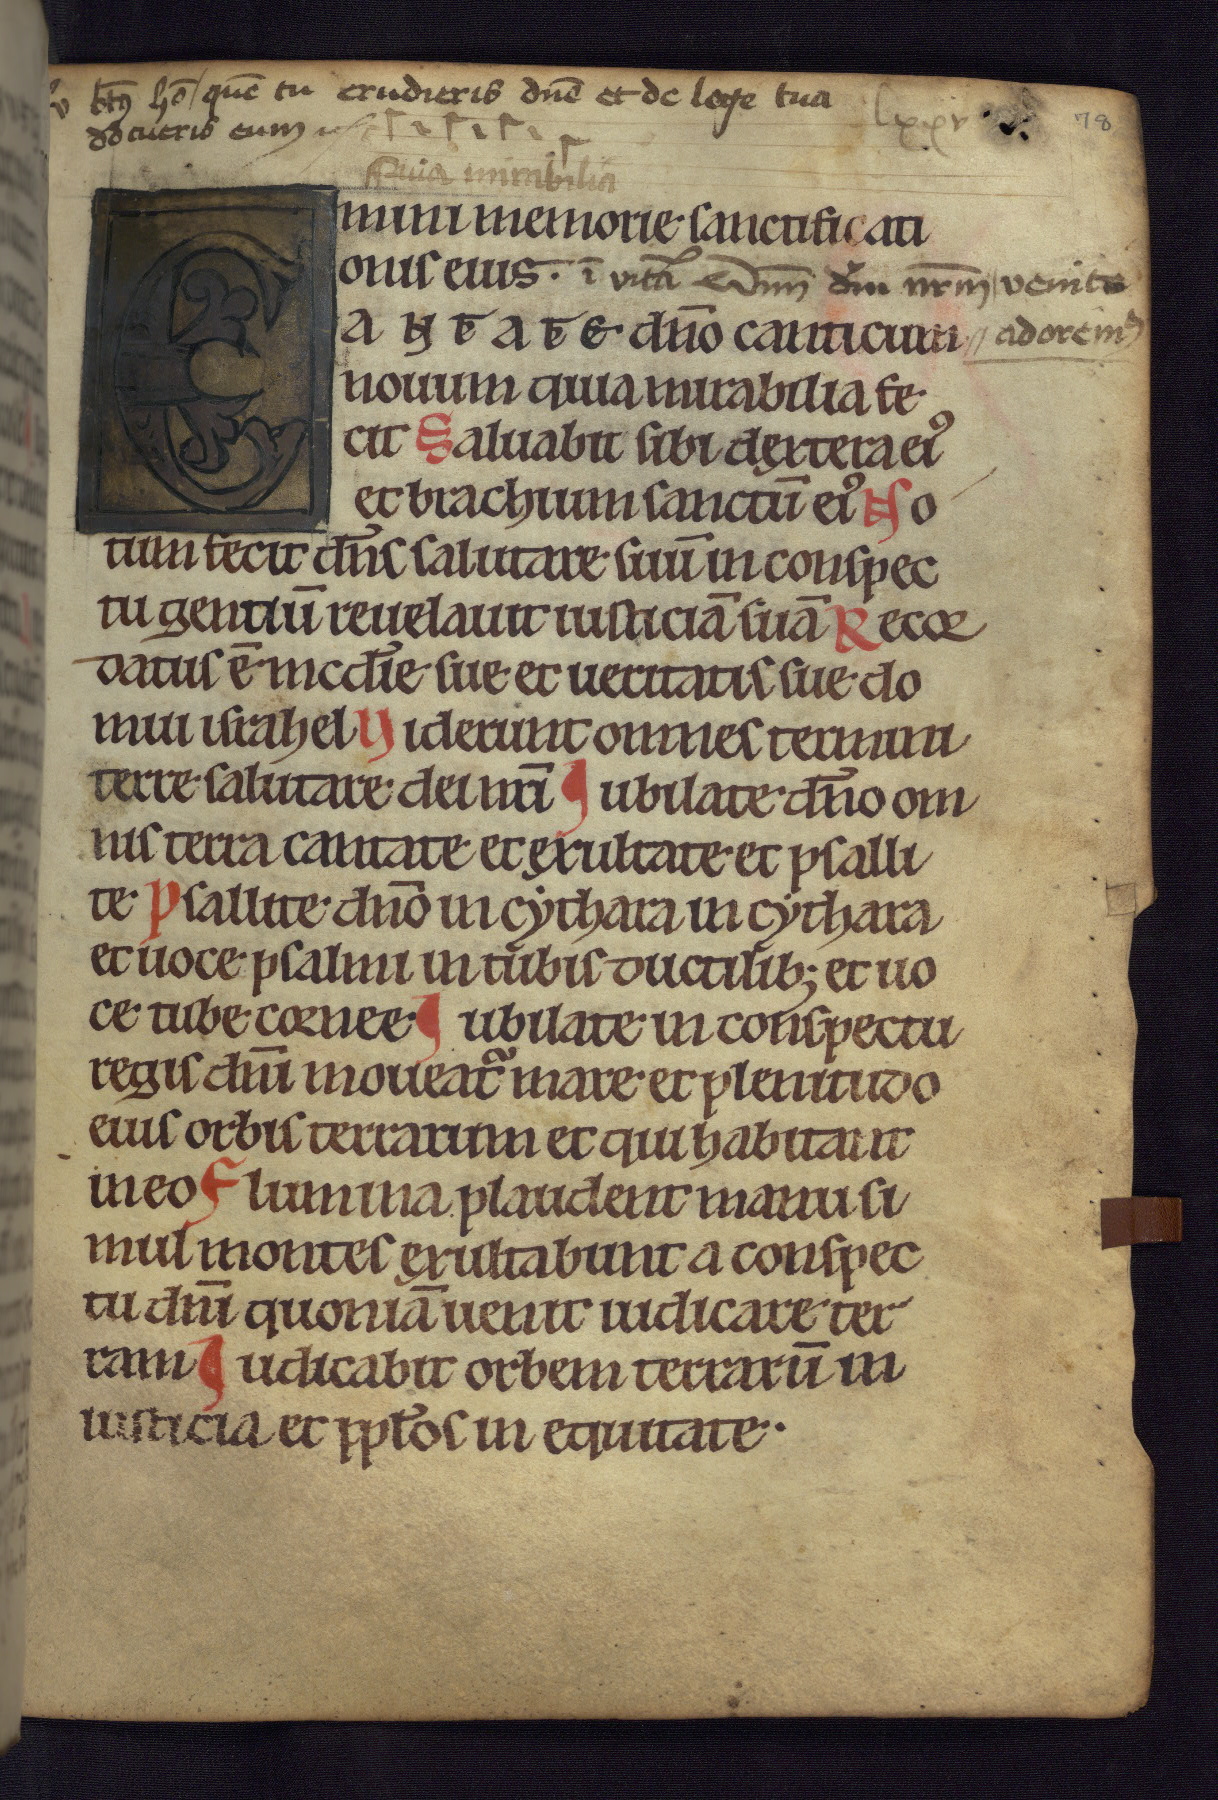 btꝰ hō quē tu erudieris dn̄e et de lege tua
docueris eum
lxxv
78
Quia mirabilia
mini memorie sanctificati
onis eius. ī vitā dn̄m nr̄m venite
CANTATE dn̄o canticum adoremꝰ
nouum quia mirabilia fe
cit Saluabit sibi dextera eiꝰ
et brachium sanctū eiꝰ No
tum fecit dn̄s salutare suū in conspec
tu gentiū reuelauit iusticiā suā Recor
datus ē mc̄die sue et ueritatis sue do
mui israhel Viderunt omnes termini
terre salutare dei nr̄i Iubilate dn̄o om
nis terra cantate et exultate et psalli
te Psallite dn̄o in cythara in cythara
et uoce psalmi in tubis ductilib; et uo
ce tube cornee Iubilate in conspectu
regis dn̄i moueat᷑ mare et plenitudo
eius orbis terrarum et qui habitant
in eo Flumina plaudent manu si
mul montes exultabunt a conspec
tu dn̄i quoniā uenit iudicare ter
ram Iudicabit orbem terrarū in
iusticia et pp̄los in equitate.